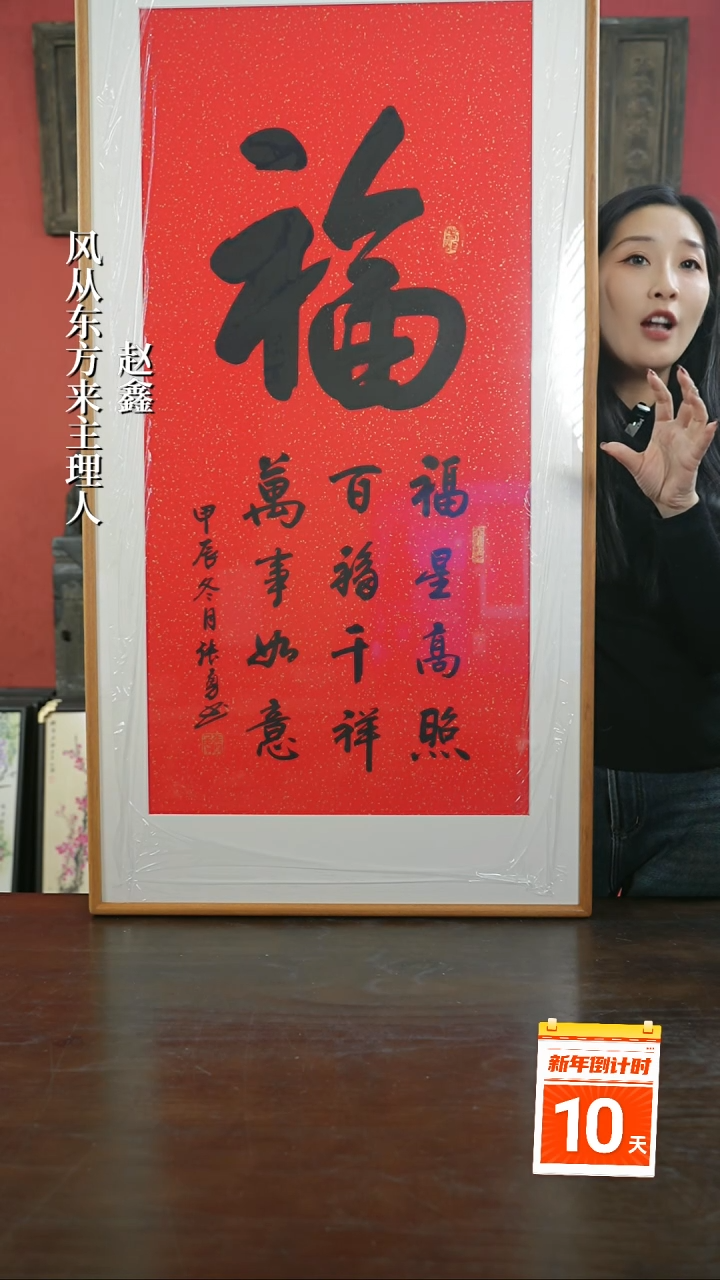 福
福星高照
百福千祥
萬事如意
甲辰冬月张勇书
赵鑫
风从东方来主理人
新年倒计时
10天